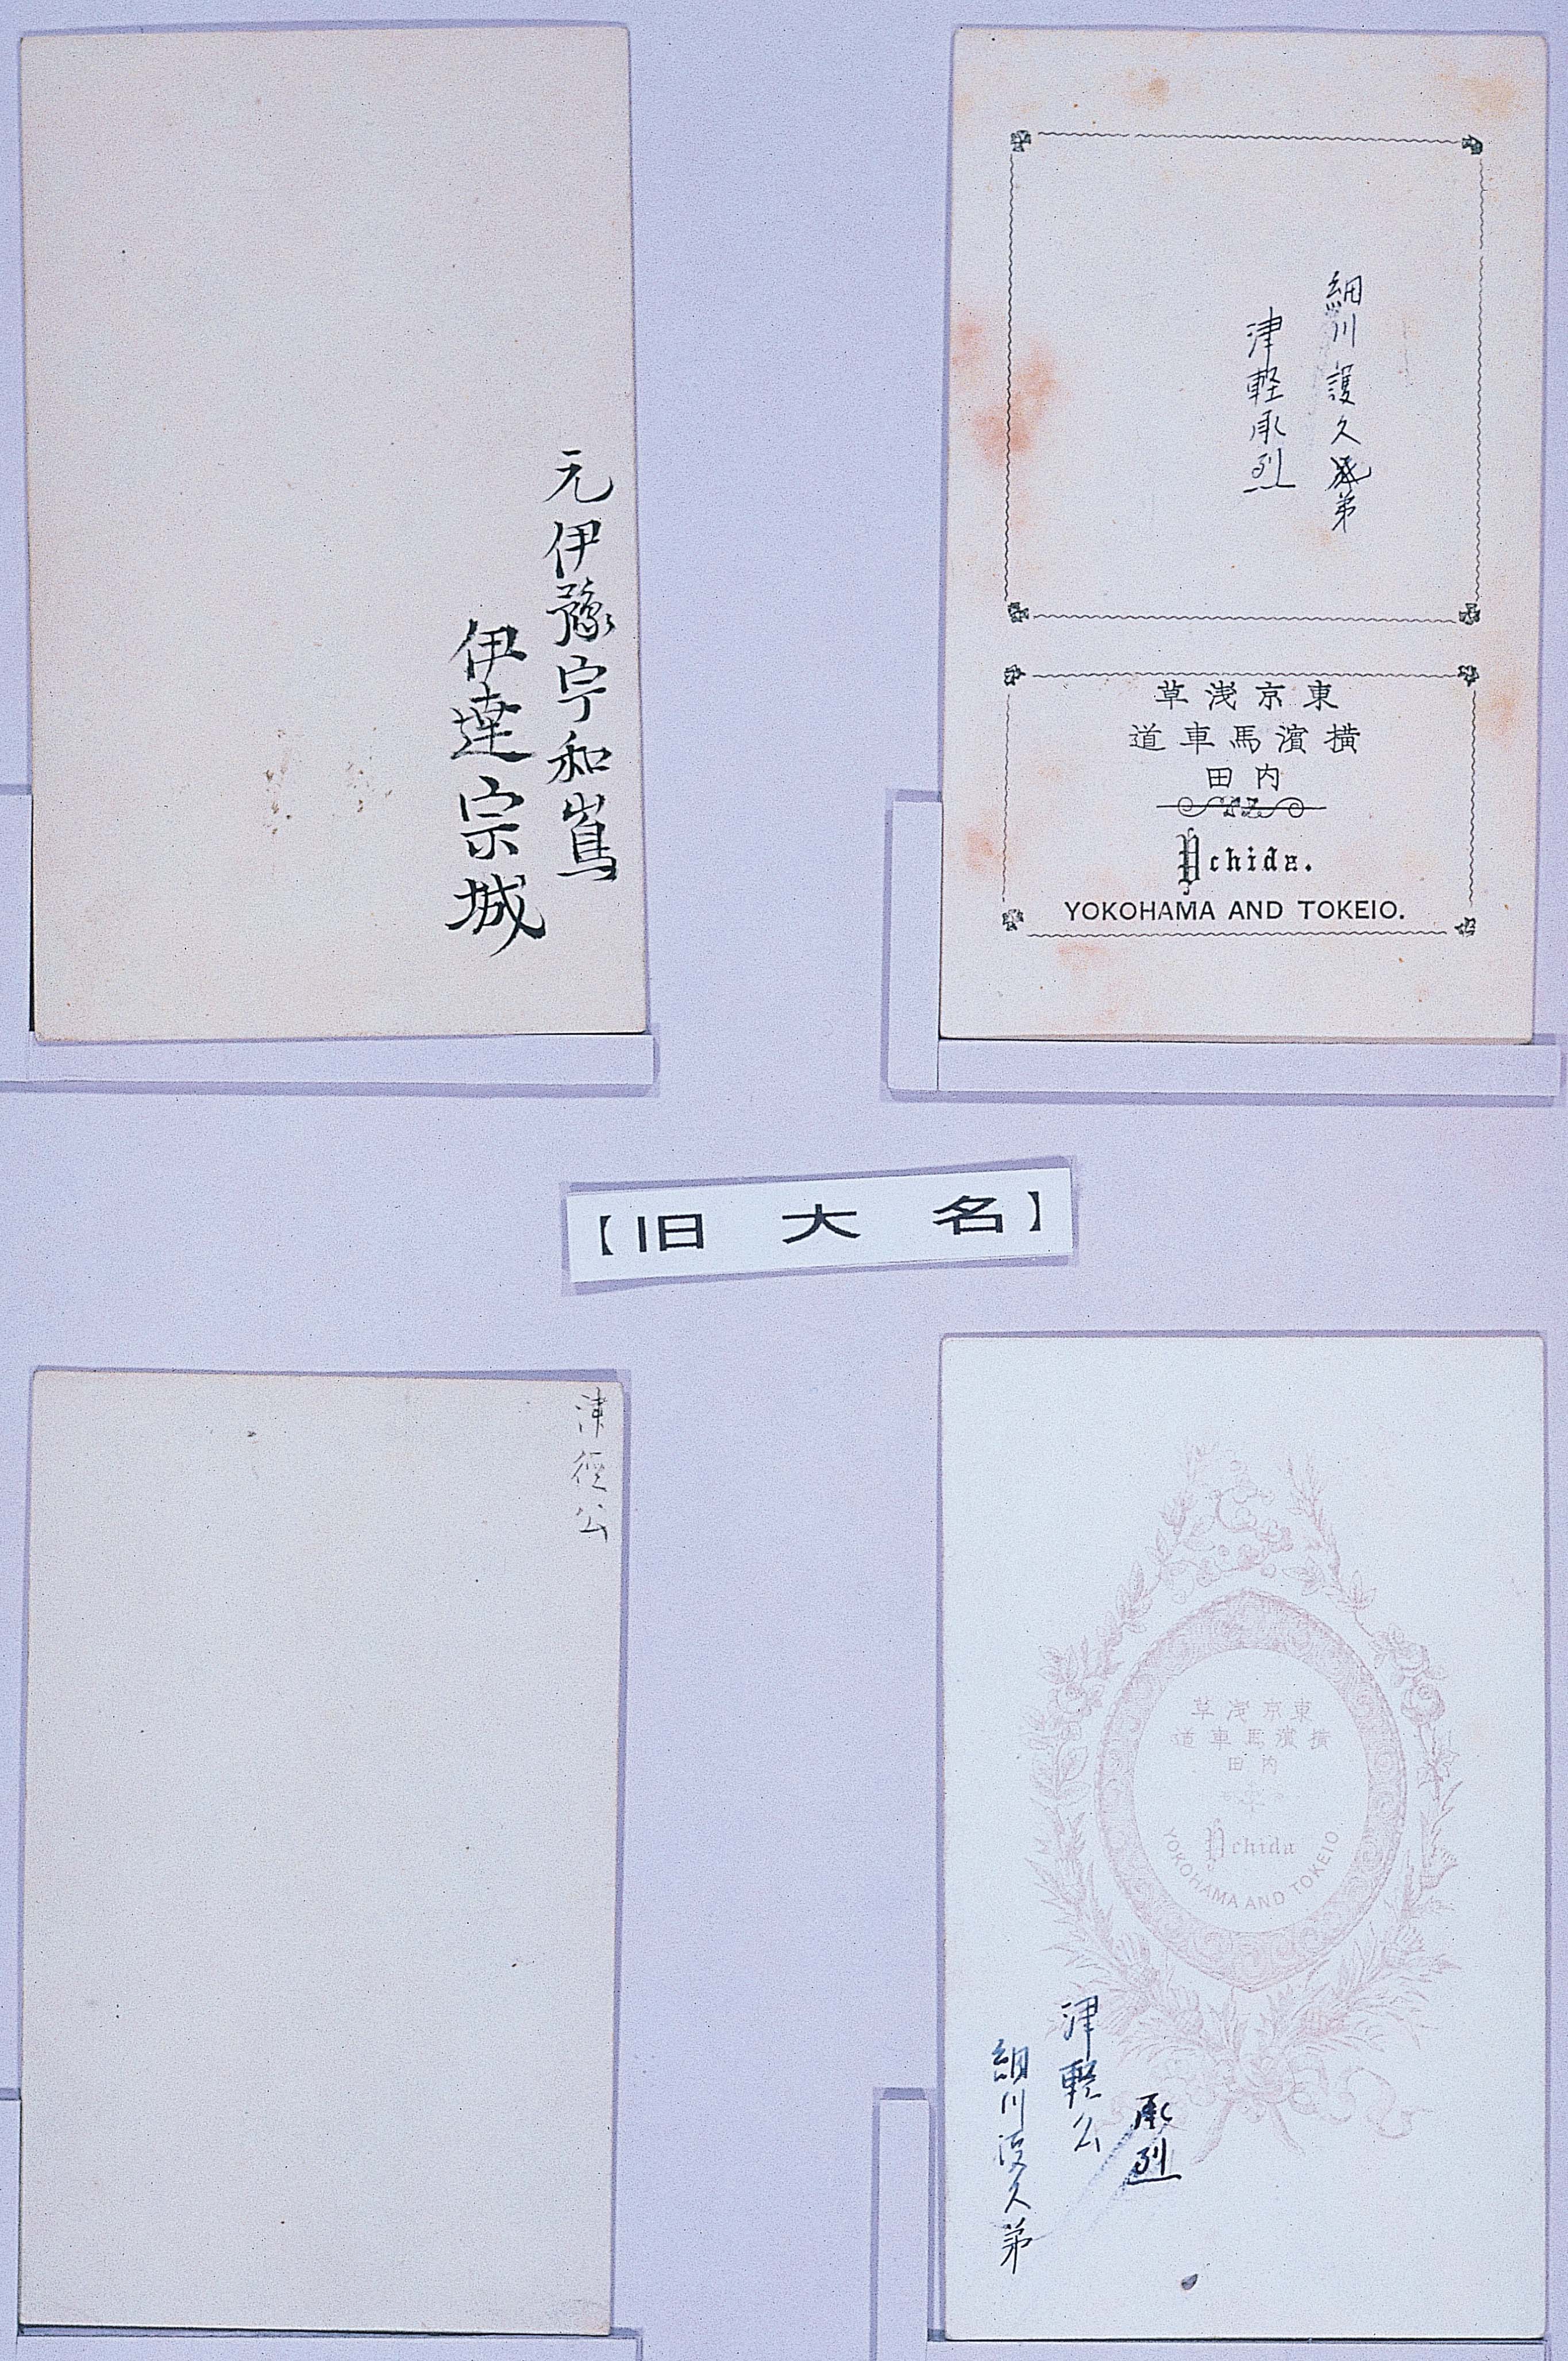 元伊豫宇和嶌
伊達宗城
細川護久弟
津軽承烈
東京浅草
横濱馬車道
内田
Uchida.
YOKOHAMA AND TOKEIO.
【旧 大 名】
津軽公
東京浅草
横濱馬車道
内田
Uchida
YOKOHAMA AND TOKEIO.
承烈
津軽公
細川護久弟